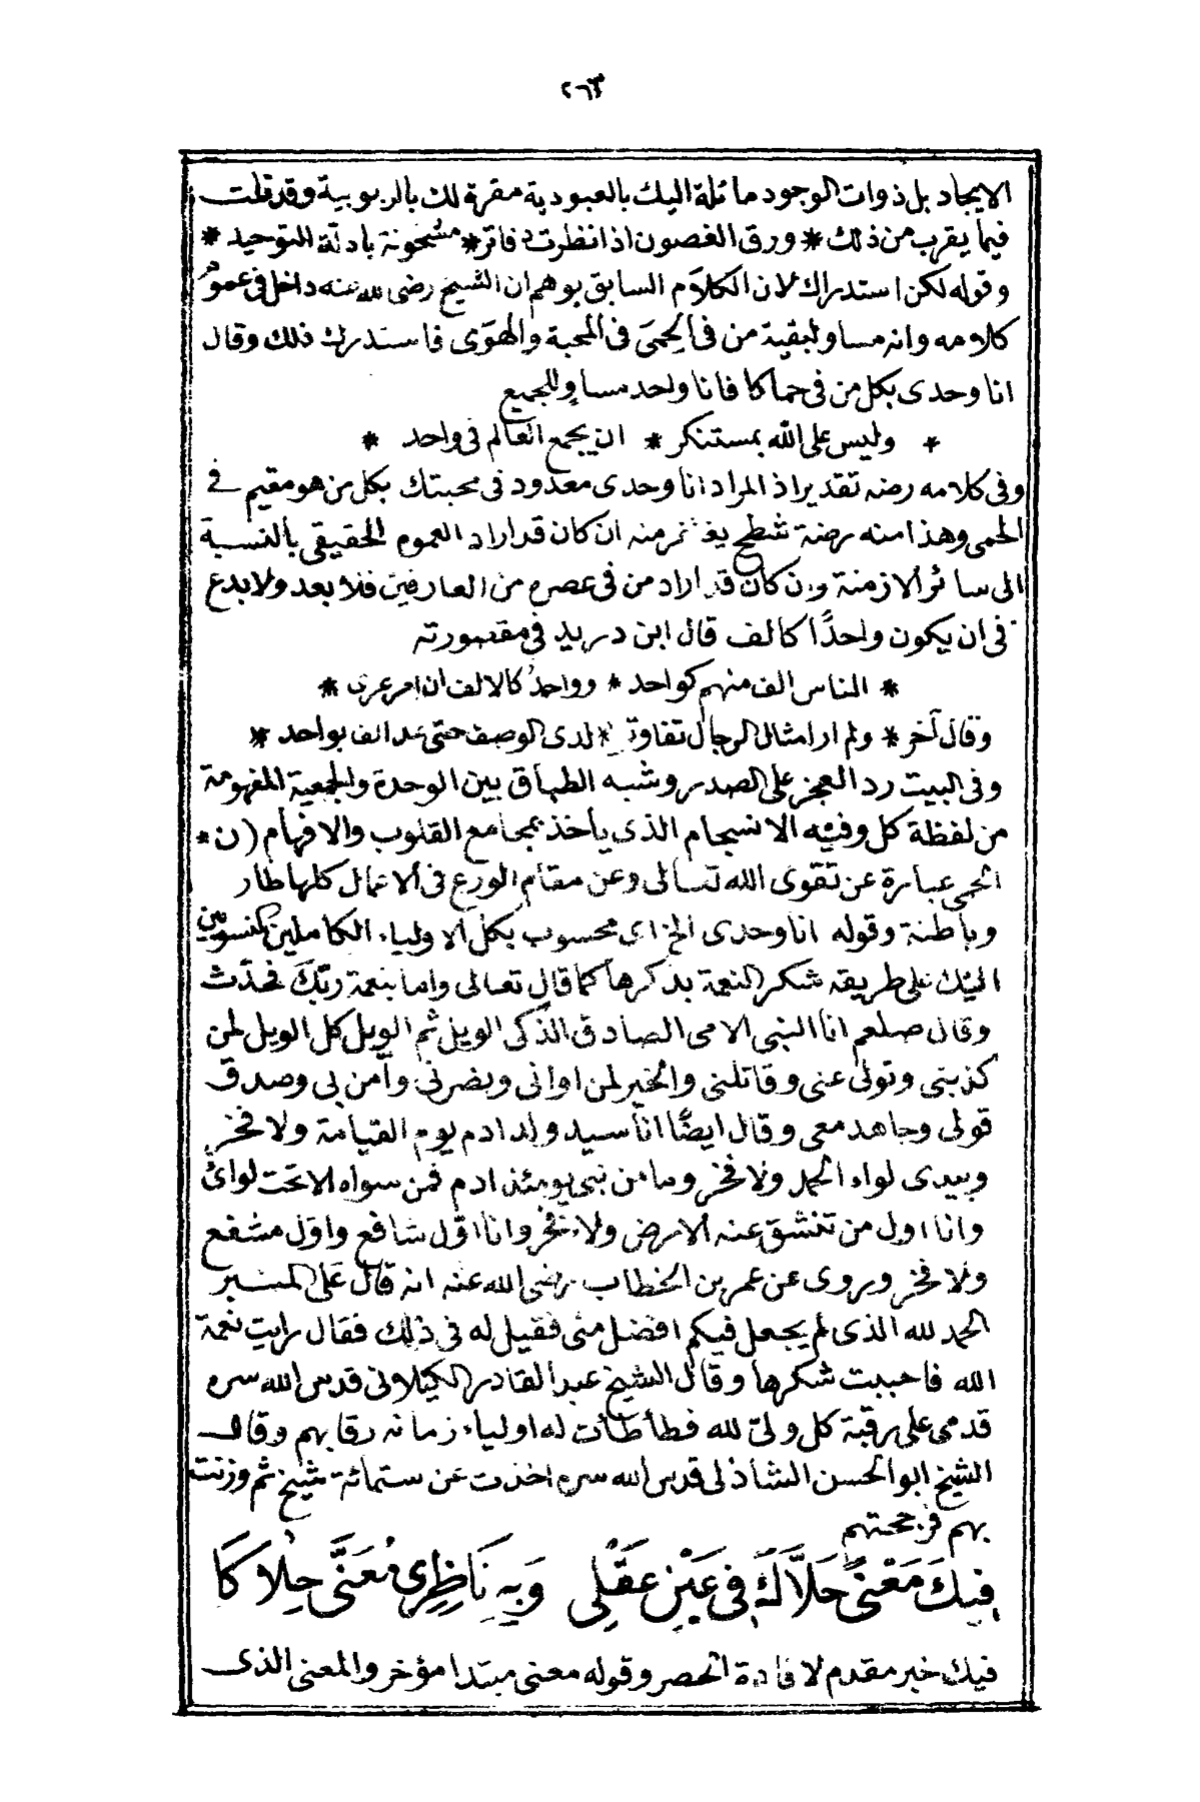 ٢٦٣
الايجاد بل ذوات الوجود مائلة اليك بالعبودية مقرة لك بالربوبية وقد قلت
فيما يقرب من ذلك * ورق الغصون اذا نظرت دفاتر * مشحونة بادلة التوحيد *
وقوله لكن استدراك لان الكلام السابق يوهم ان الشيخ رضى الله عنه داخل فى عموم
كلامه وانه مساو لبقية من فى الحِمَى فى المحبة والهوَى فاستدرك ذلك وقال
انا وحدى بكل من فى حماكا فانا واحد مساوٍ للجميع
* وليس على الله بمستنكر * ان يجمع العالم فى واحد *
وفى كلامه رضه تقدير اذ المراد انا وحدى معدود فى محبتك بكل من هو مقيم فى
الحمى وهذا منه رضه شطح يغتفر منه ان كان قد اراد العموم الحقيقى بالنسبة
الى سائر الازمنة وان كان قد اراد من فى عصره من العارفين فلا بعد ولا بدع
فى ان يكون واحدًا كالف قال ابن دريد فى مقصورته
* الناس الف منهم كواحد * وواحدٌ كالالف ان امر عرى *
وقال آخر * ولم ار امثال الرجال تفاوتا * لدى الوصف حتى عد الف بواحد *
وفى البيت رد العجز على الصدر وشبه الطباق بين الوحدة والجمعية المفهومة
من لفظة كل وفيه الانسجام الذى يأخذ بمجامع القلوب والافهام (ن *
الحمى عبارة عن تقوى الله تعالى وعن مقام الورع فى الاعمال كلها ظاهرة
وباطنة وقوله انا وحدى الخ اى محسوب بكل الاولياء الكاملين المنسوبين
اليك على طريقه شكر النعمة بذكرها كما قال تعالى واما بنعمة ربّكَ فحدّث
وقال صلعم انا النبى الامى الصادق الذكى الويل ثم الويل كل الويل لمن
كذبنى وتولى عنى وقاتلنى والخير لمن اوانى ونصرنى وآمن بى وصدق
قولى وجاهد معى وقال ايضًا انا سيد ولد ادم يوم القيامة ولا فخر
وبيدى لواء الحمد ولا فخر وما من نبى يومئذ ادم فمن سواه الا تحت لوائ
وانا اول من تنشق عنه الارض ولا فخر وانا اوّل شافع واوّل مشفع
ولا فخر ويروى عن عمر بن الخطاب رضى الله عنه انه قال على المنبر
الحمد لله الذى لم يجعل فيكم افضل منى فقيل له فى ذلك فقال رايت نعمة
الله فاحببت شكرها وقال الشيخ عبد القادر الكيلانى قدس الله سره
قدمى على رقبة كل ولىّ لله فطأطأت له اولياء زمانه رقابهم وقال
الشيخ ابو الحسن الشاذلى قدس الله سره اخذت عن ستمائة شيخ ثم وزنت
بهم فرجحتهم
فِيكَ مَعْنىً حَلَّاكَ فِى عَيْنِ عَقْلِى وَبِهِ نَاظِرِى مُعَنَّى حِلَاكَا
فيك خبر مقدم لافادة الحصر وقوله معنى مبتدا مؤخر والمعنى الذى